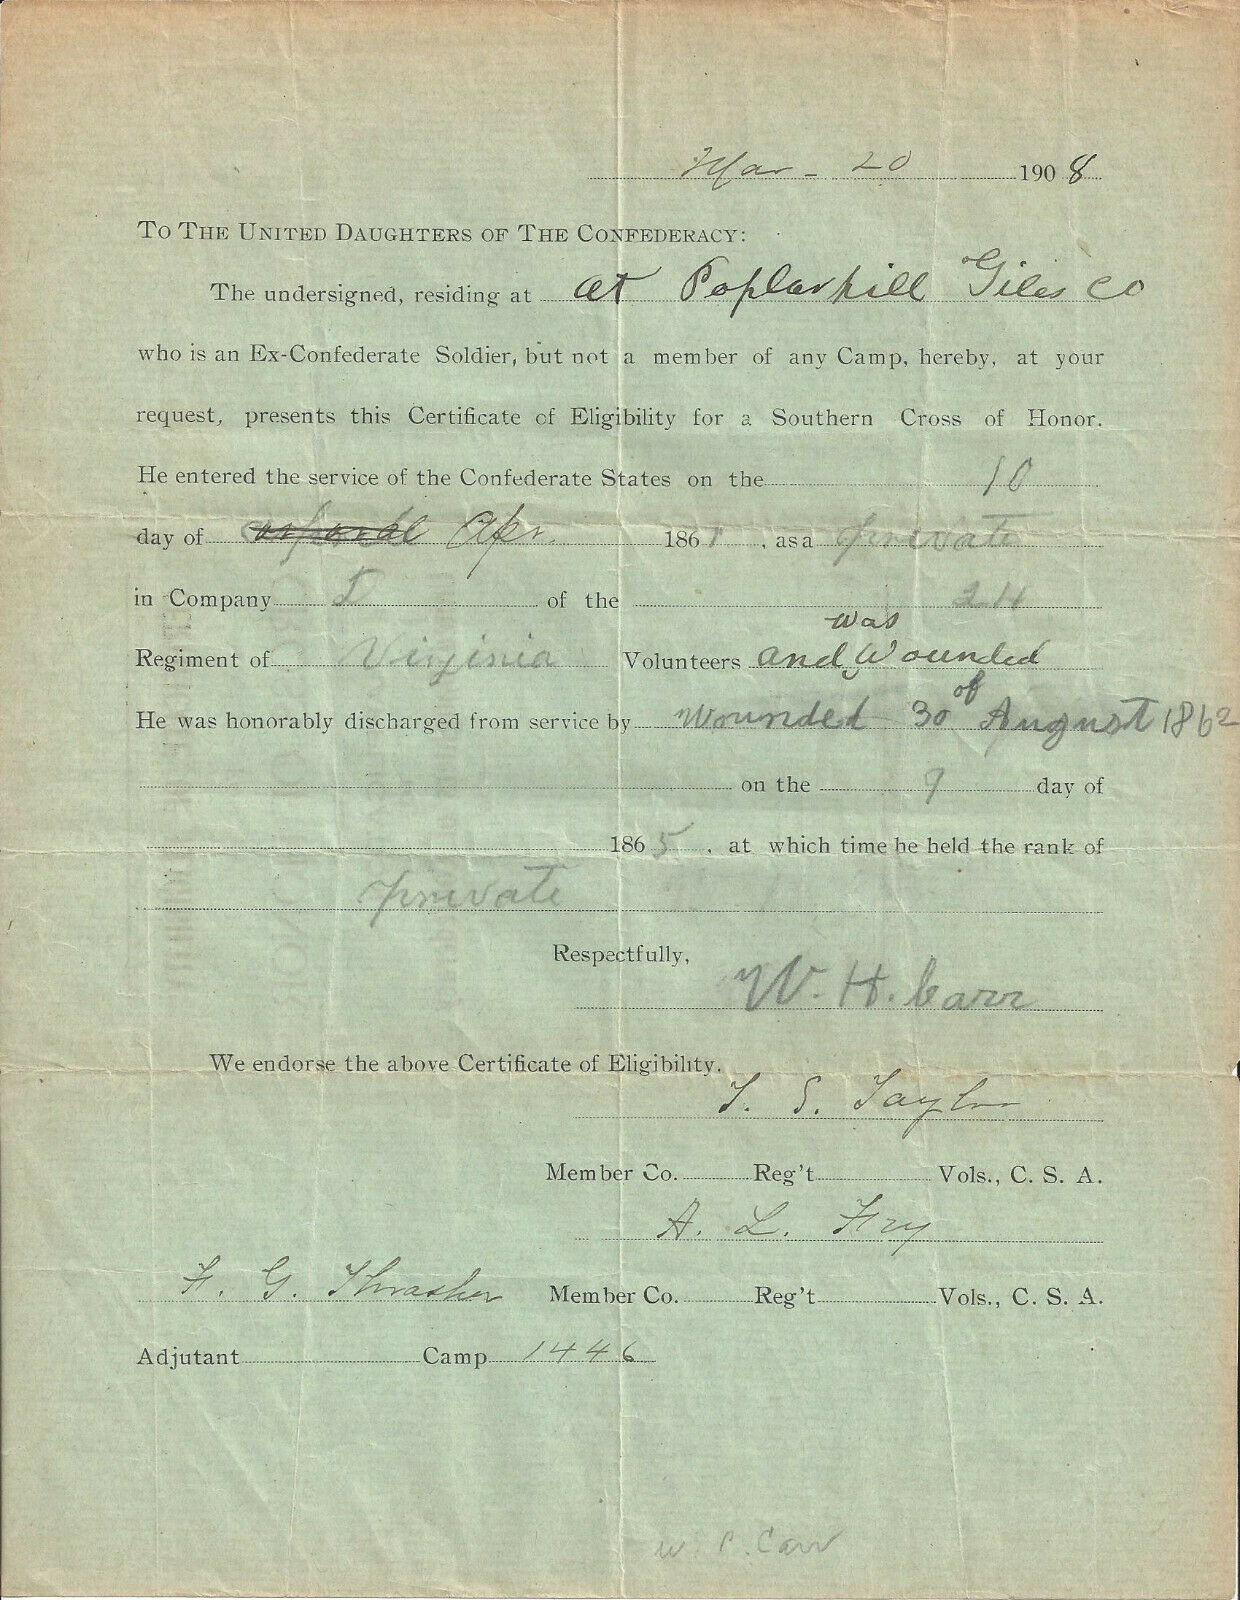 Mar - 20 1908
TO THE UNITED DAUGHTERS OF THE CONFEDERACY:
The undersigned, residing at at Poplarhill Giles Co
who is an Ex-Confederate Soldier, but not a member of any Camp, hereby, at your
request, presents this Certificate of Eligibility for a Southern Cross of Honor.
He entered the service of the Confederate States on the 10
day of corporal Apr. 1861, as a private
in Company I of the 24
was
Regiment of Virginia Volunteers and Wounded
of
He was honorably discharged from service by Wounded 30 August 1862
on the 9 day of
1865, at which time he held the rank of
private
Respectfully,
W. H. Carr
We endorse the above Certificate of Eligibility.
T. S. Taylor
Member Co. Reg't Vols., C. S. A.
A. L. Fry
F. G. Thrasher Member Co. Reg't Vols., C. S. A.
Adjutant Camp 1446
W. P. Carr